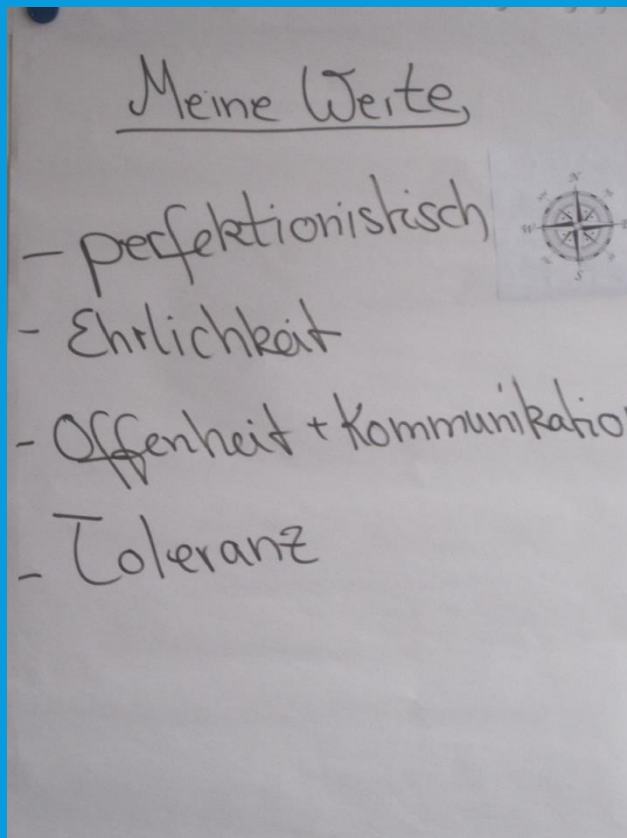 Meine Werte
- perfektionistisch
- Ehrlichkeit
- Offenheit + Kommunikatio
- Toleranz
N
W
S